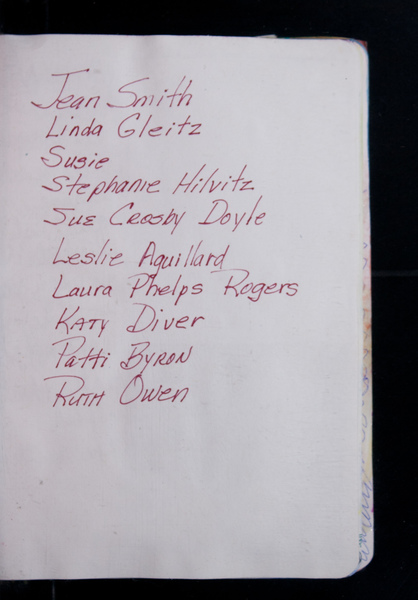 Jean Smith
Linda Gleitz
Susie
Stephanie Hilvitz
Sue Crosby Doyle
Leslie Aguillard
Laura Phelps Rogers
Katy Diver
Patti Byron
Ruth Owen